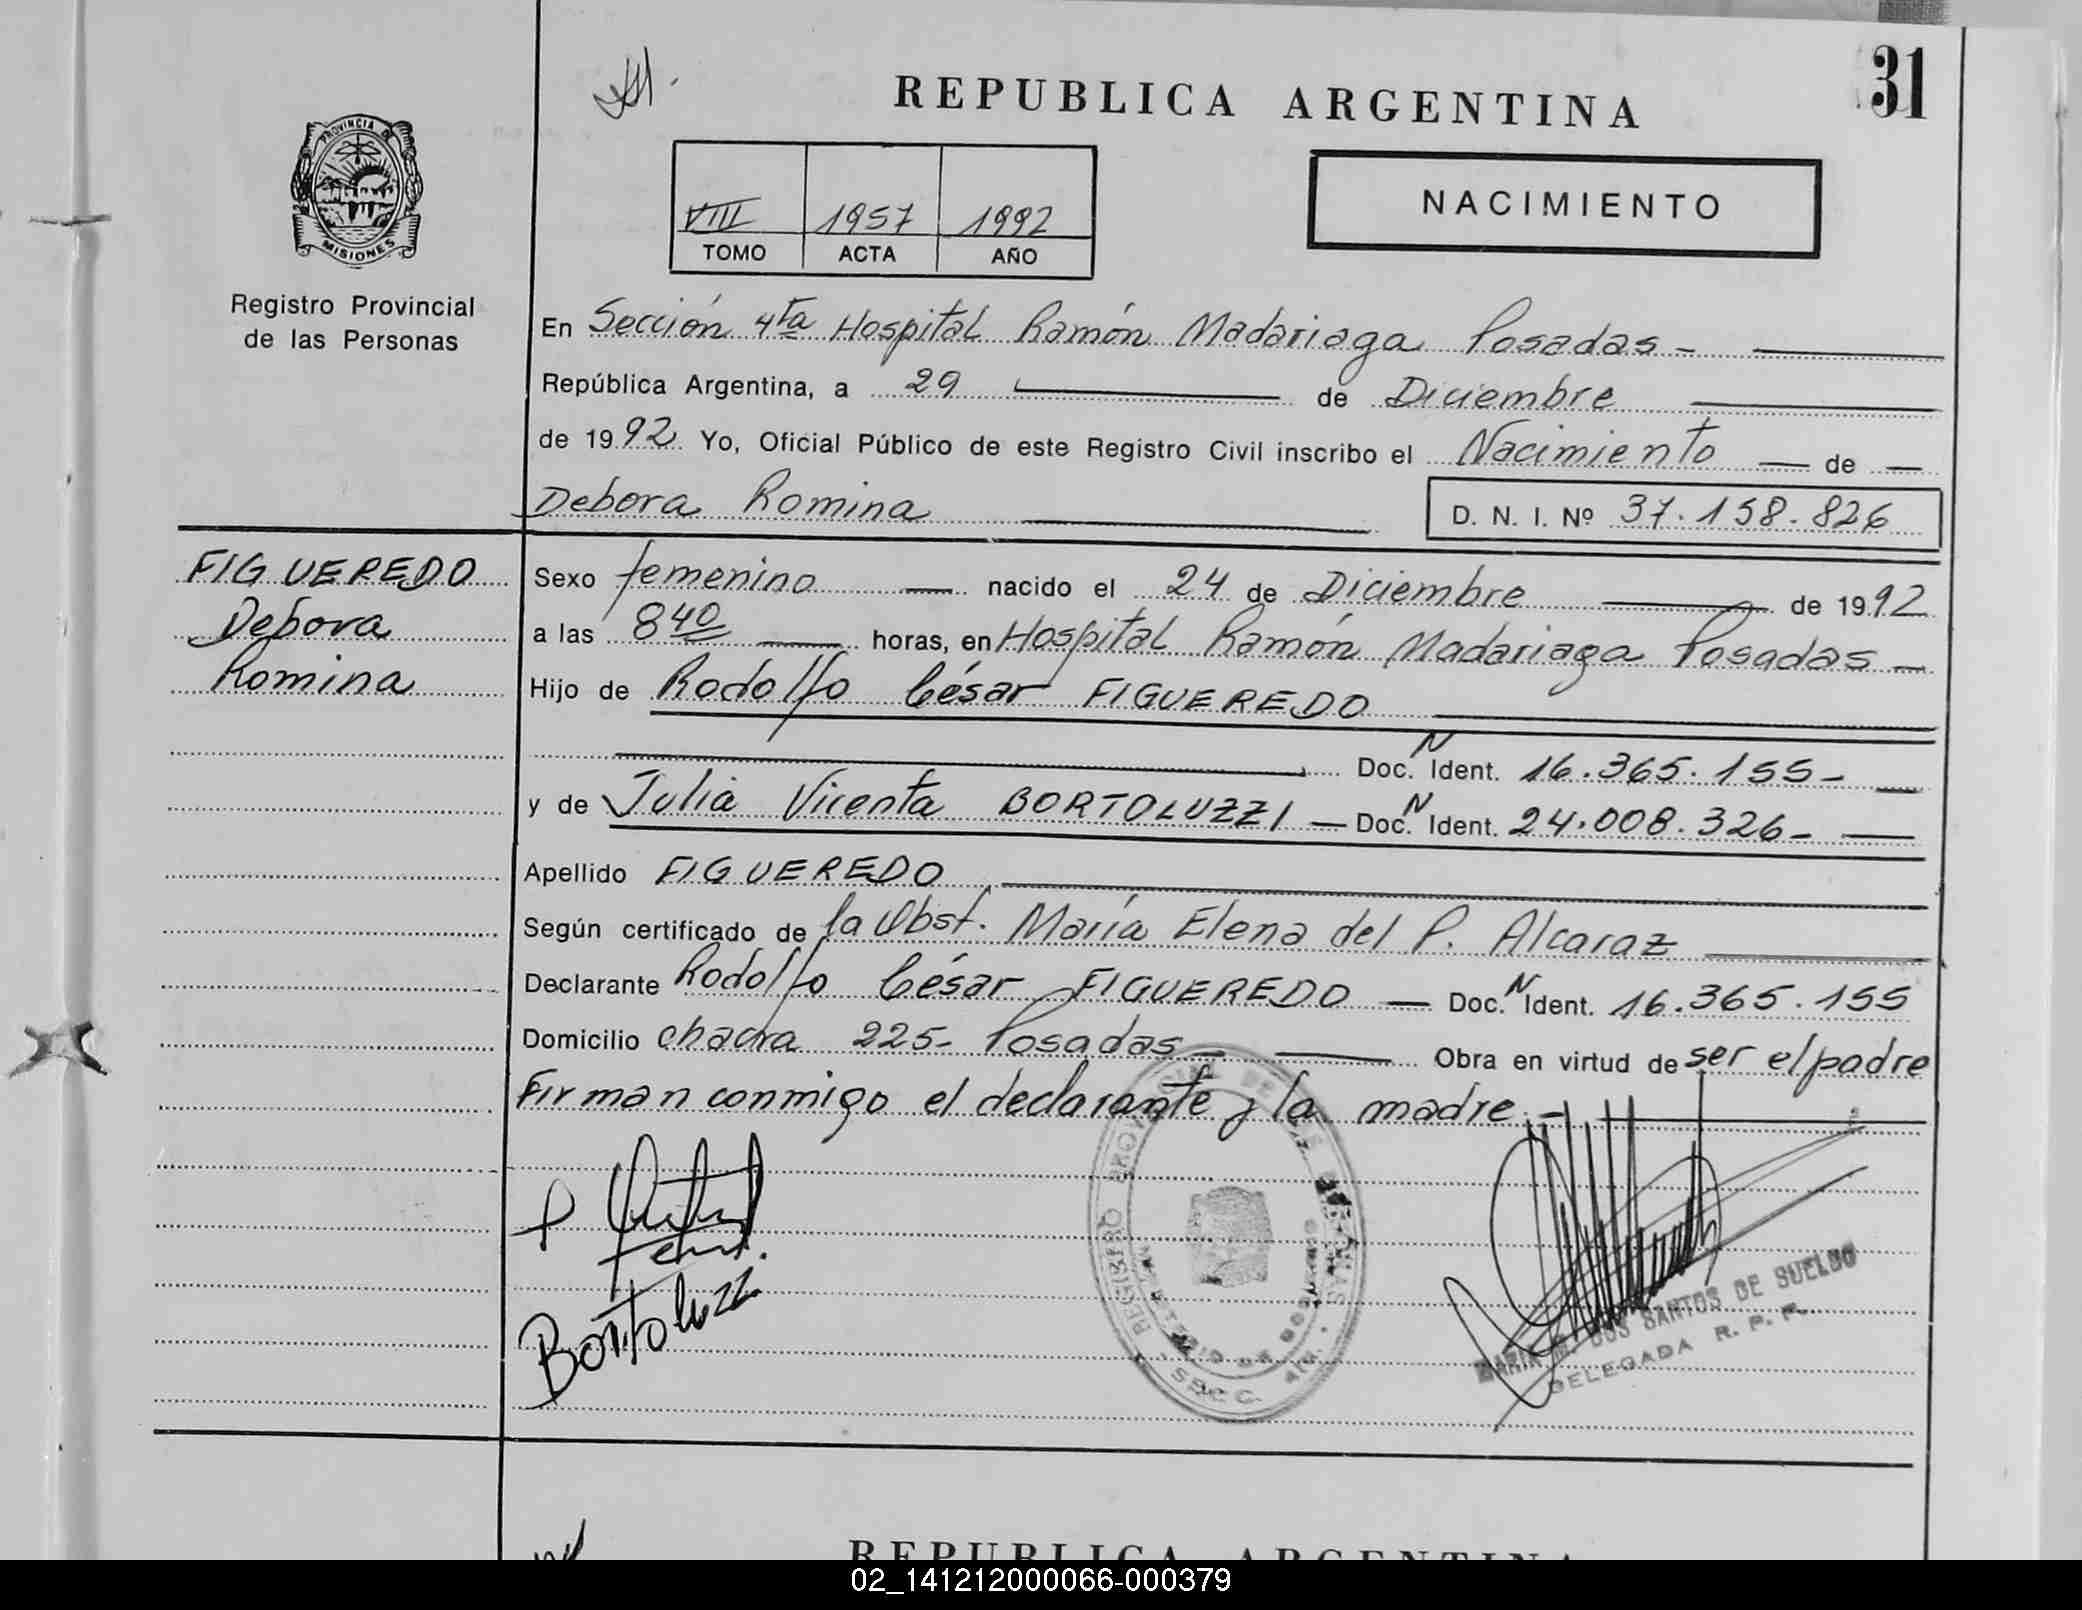 31
REPUBLICA ARGENTINA
PROVINCIA DE
MISIONES
Registro Provincial
de las Personas
VIII 1957 1992
TOMO ACTA AÑO
NACIMIENTO
En Sección 4ta Hospital Ramón Madariaga Posadas -
República Argentina, a 29 de Diciembre
de 1992 Yo, Oficial Público de este Registro Civil inscribo el Nacimiento de
Debora Romina D. N. I. Nº 37.158.826
FIGUEREDO
Debora
Romina
Sexo femenino nacido el 24 de Diciembre de 1992
a las 8 40 horas, en Hospital Ramón Madariaga Posadas -
Hijo de Rodolfo César FIGUEREDO
Doc. N Ident. 16.365.155-
y de Julia Vicenta BORTOLUZZI — Doc. N Ident. 24.008.326-
Apellido FIGUEREDO
Según certificado de la Obst. María Elena del P. Alcaraz
Declarante Rodolfo César FIGUEREDO — Doc. N Ident. 16.365.155
Domicilio chacra 225- Posadas - Obra en virtud de ser el padre
Firman conmigo el declarante y la madre. -
Bortoluzzi
REGISTRO PROVINCIAL DE LAS PERSONAS
MINISTERIO DE GOBIERNO
SECC. 4ta.
MARIA M. DOS SANTOS DE SUELDO
DELEGADA R. P. P.
REPUBLICA ARGENTINA
02_141212000066-000379